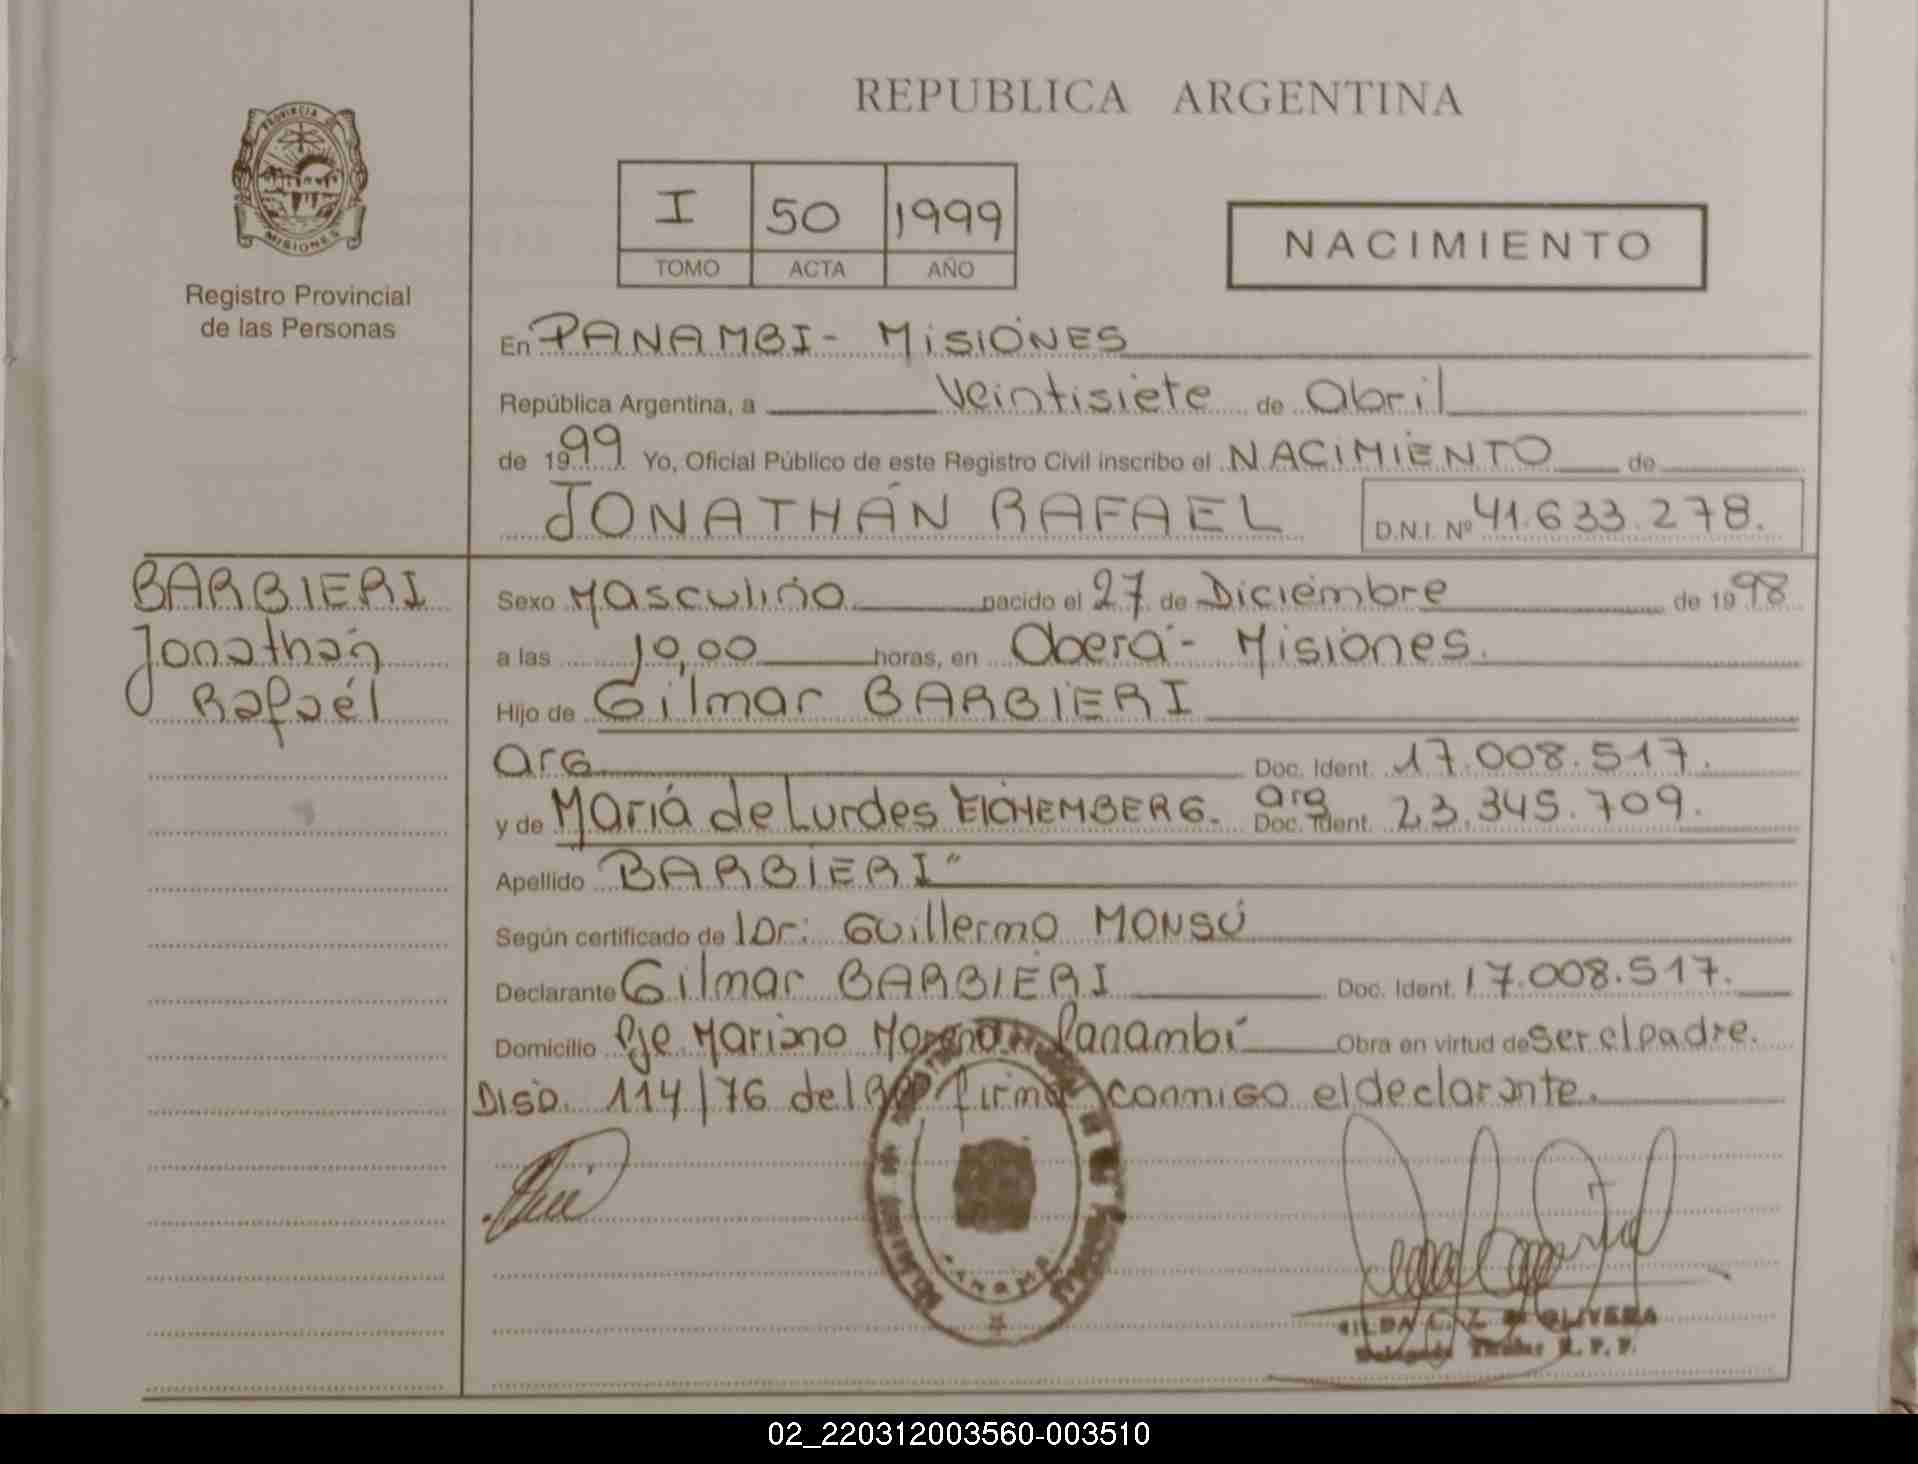 REPUBLICA ARGENTINA
PROVINCIA DE
MISIONES
Registro Provincial
de las Personas
I 50 1999
TOMO ACTA AÑO
NACIMIENTO
En PANAMBI - MISIONES
República Argentina, a Veintisiete de abril
de 1999 Yo, Oficial Público de este Registro Civil inscribo el NACIMIENTO de
JONATHÁN RAFAEL D.N.I. Nº 41.633.278.
BARBIERI
Jonathán
Rafaél
Sexo Masculino nacido el 27 de Diciembre de 1998
a las 10,00 horas, en Oberá - Misiones.
Hijo de Gilmar BARBIERI
arg Doc. Ident. 17.008.517.
y de María de Lurdes EICHEMBERG. arg Doc. Ident. 23.345.709.
Apellido BARBIERI"
Según certificado de Dr: Guillermo MONSÚ
Declarante Gilmar BARBIERI Doc. Ident. 17.008.517.
Domicilio Pje Mariano Moreno Panambí Obra en virtud de ser el padre.
Disp. 114/76 del firma conmigo el declarante.
DE OLIVERA
Titular R. P. P.
02_220312003560-003510